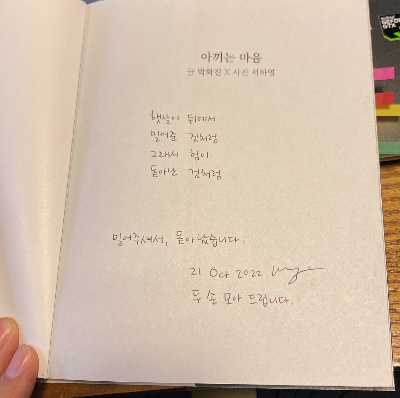 아끼는 마음
글 박화진 X 사진 서하영
햇살이 뒤에서
밀어준 것처럼
그래서 힘이
돋아난 것처럼
밀어주셔서, 돋아났습니다.
21 Oct 2022
두 손 모아 드립니다.
GEFORCE
GTX